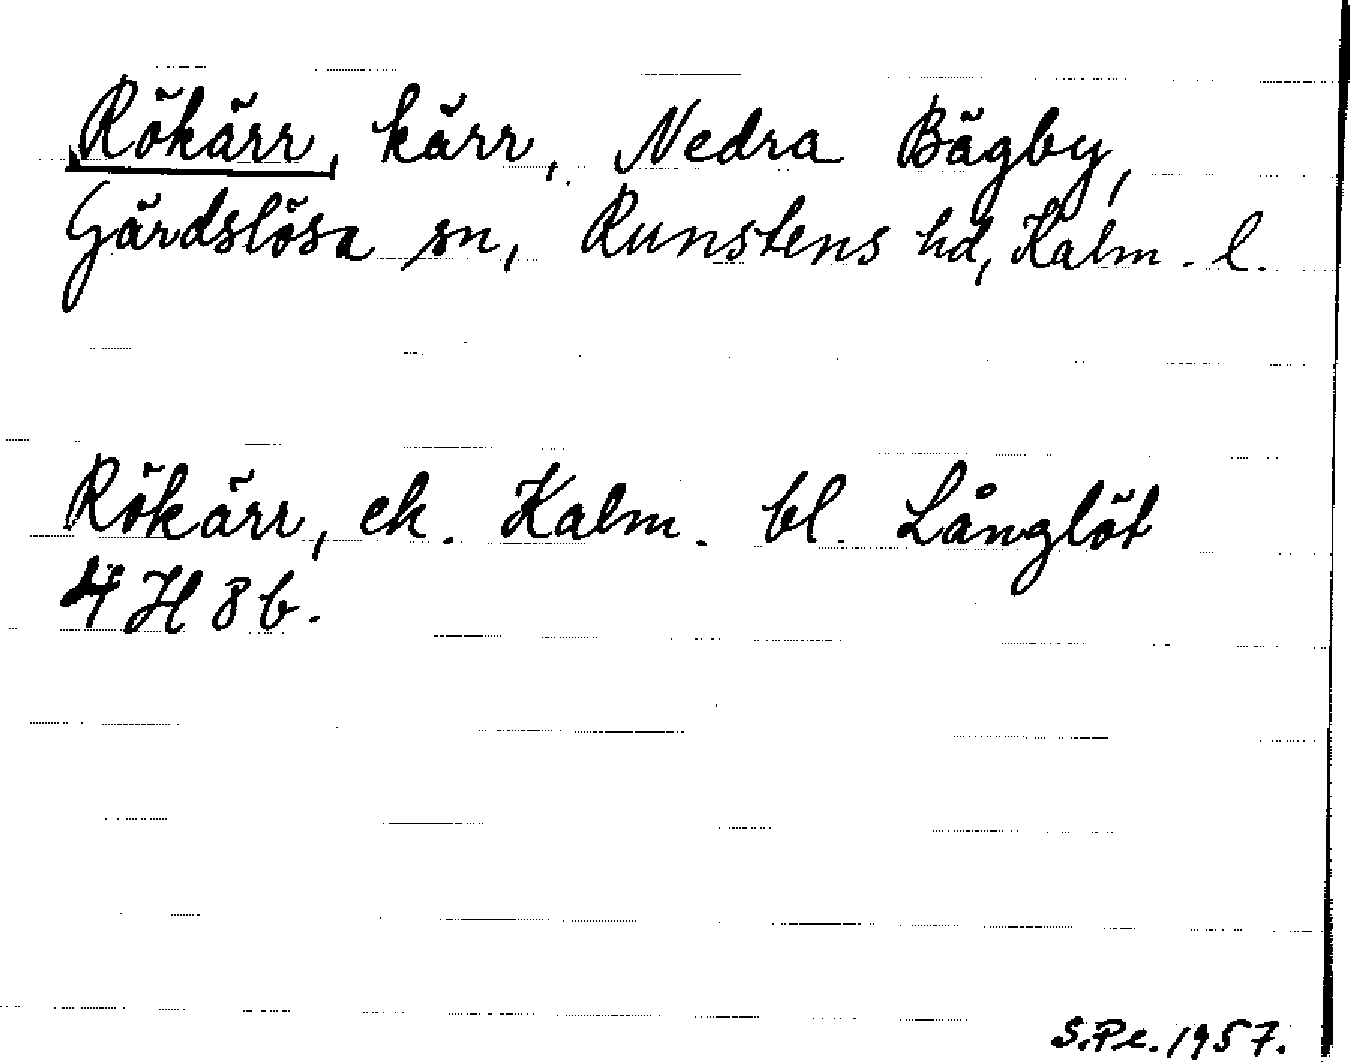 Rökärr, kärr, Nedra Bägby,
Gärdslösa sn, Runstens hd, Kalm. l.
Rökärr, ek. Kalm. bl. Långlöt
4 H 8 b.
S.Pe. 1957.